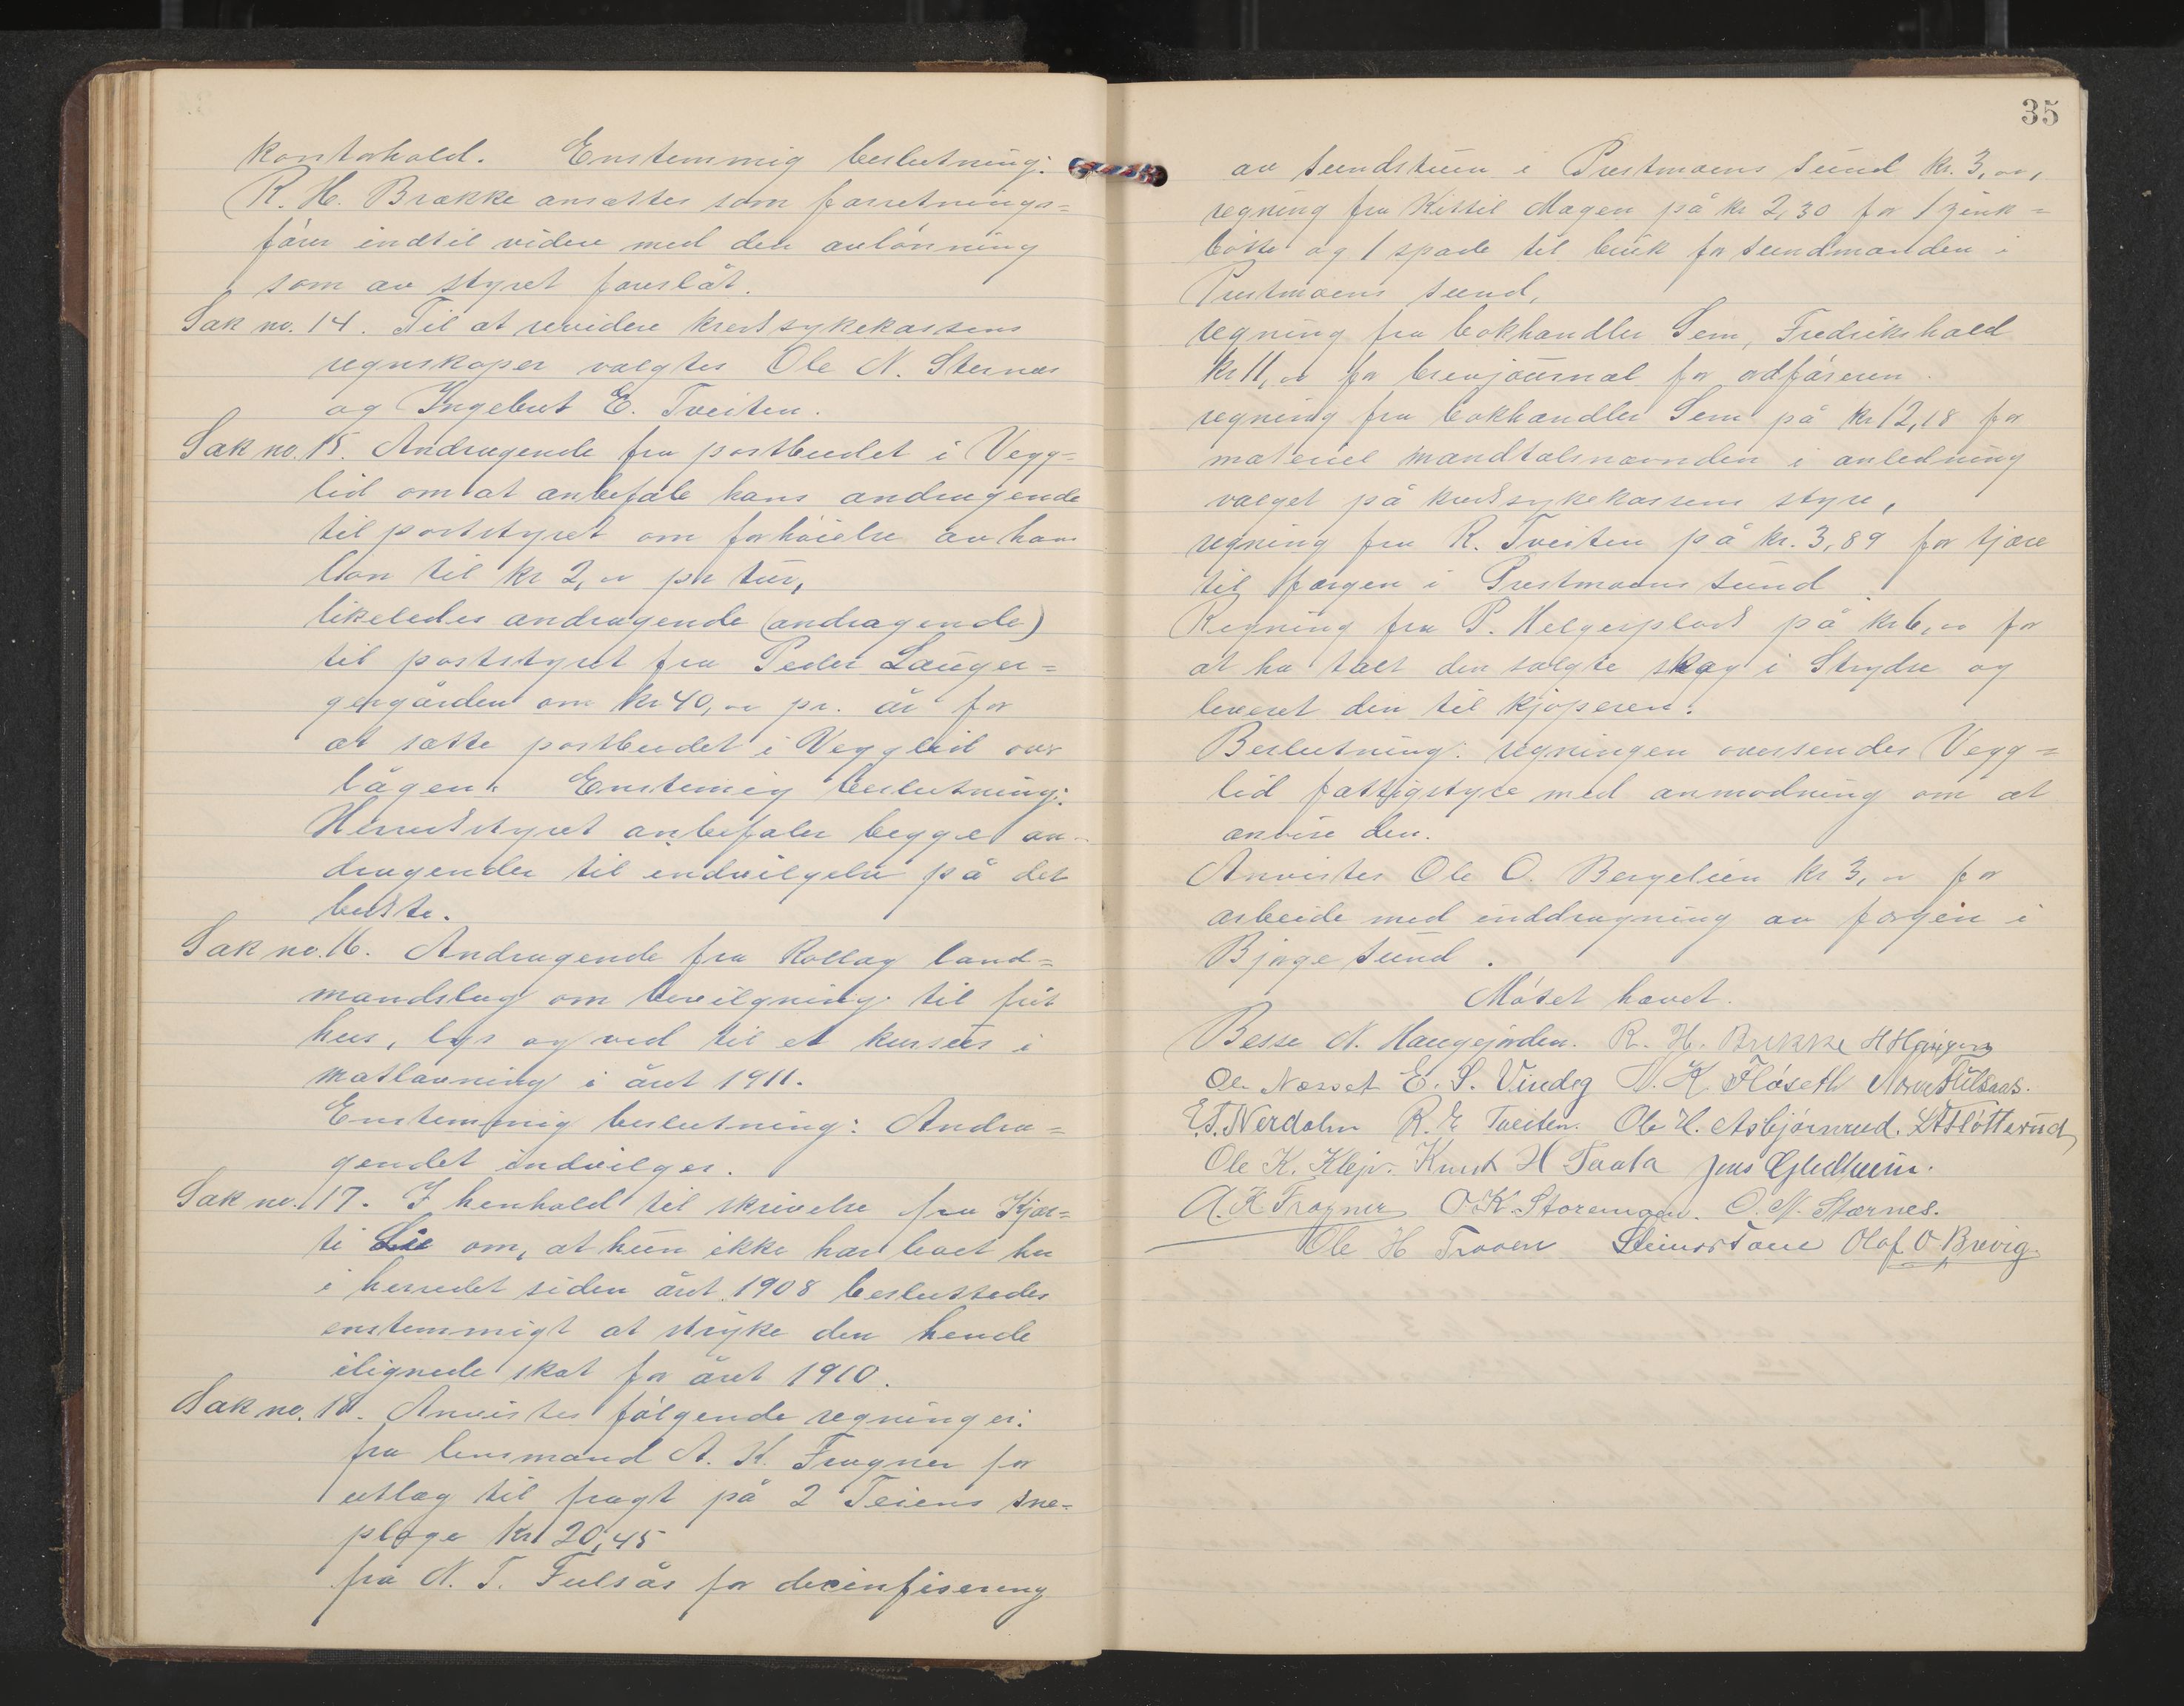 kontorhold. Enstemmig beslutning:
R. H. Brække ansættes som forretnings=
fører indtil videre med den avlønning
som av styret foreslåt.
Sak no. 14. Til at revidere kredssykekassens
regnskaper valgtes Ole N. Sternæs
og Ingebret E. Tveiten.
Sak no. 15. Andragende fra postbudet i Vegg=
lid om at anbefale hans andragende
til poststyret om forhøielse av hans
løn til kr 2,00 pr tur,
likeledes andragende (andragende)
til poststyret fra Peder Lauger=
gergården om kr 40,00 pr. år for
at sætte postbudet i Vegglid over
lågen. Enstemig beslutning:
Herredstyret anbefaler begge an-
dragender til indvilgelse på det
bedste.
Sak no. 16. Andragende fra Rollag land=
mandslag om bevilgning til frit
hus, lys og ved til et kursus i
matlavning i året 1911.
Enstemmig beslutning: Andra=
gendet indvilges.
Sak no. 17. I henhold til skrivelse fra Kjer=
ti Lie om, at hun ikke har boet her
i herredet siden året 1908 besluttedes
enstemmigt at stryke den hende
ilignede skat for året 1910.
Sak no. 18. Anvistes følgende regninger:
fra lensmand A. K. Fragner for
utlæg til fragt på 2 Teiens sne-
ploge kr 20,45
fra N. T. Fulsås for decinfisering
35
av sundstuen i Prestmoens sund kr. 3,00,
regning fra Kittil Mogen på kr 2,30 for 1 zink=
bøtte og 1 spade til bruk for sundmanden i
Prestmoens sund,
regning fra bokhandler Sem, Fredrikshald
kr 11,00 for brevjournal for ordføreren.
regning fra bokhandler Sem på kr 12,18 for
materiel mandtalsnævnden i anledning
valget på kredssykekassens styre,
regning fra R. Tveiten på kr. 3,89 for tjære
til færgen i Prestmoens sund
Regning fra P. Helgesplads på kr 6,00 for
at ha talt den solgte skog i Strydse og
leveret den til kjøperen.
Beslutning: regningen oversendes Vegg=
lid fattigstyre med anmodning om at
anvise den.
Anvistes Ole O. Bergelien kr 3,00 for
arbeide med inddragning av færgen i
Bjørge sund.
Møtet hævet.
Besse N. Haugejorden. R. H. Brække H Haugen
Ole Næsset E. S. Vindeg N. K. Fløseth Fulsaas.
E. T. Nerdalen R. E Tveiten. Ole H. Asbjørnrud. Fløtterud
Ole K. Klejv. Knut H Taala Jens Gladheim.
A. K Fragner O. K. Storemoen. O. N. Stærnes.
Ole H Traaen Steinar Taue Olaf O Brevig.